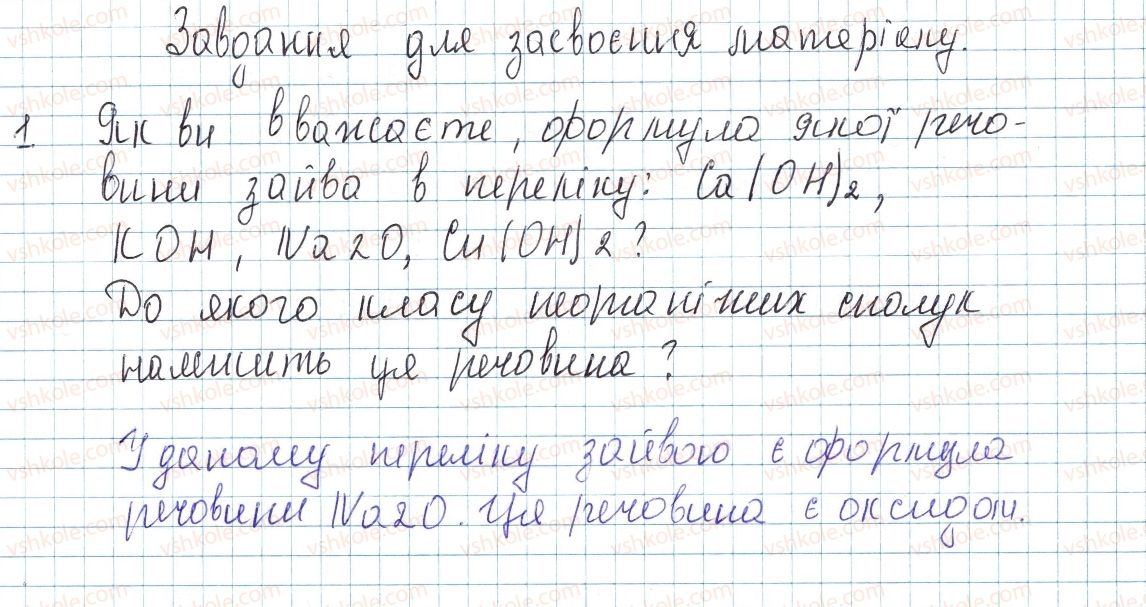 Завдання для засвоєння матеріалу.
1 Як ви вважаєте, формула якої речо-
вини зайва в переліку: Ca(OH)2,
KOH, Na2O, Cu(OH)2?
До якого класу неорганічних сполук
належить ця речовина?
У даному переліку зайвою є формула
речовини Na2O. Ця речовина є оксидом.